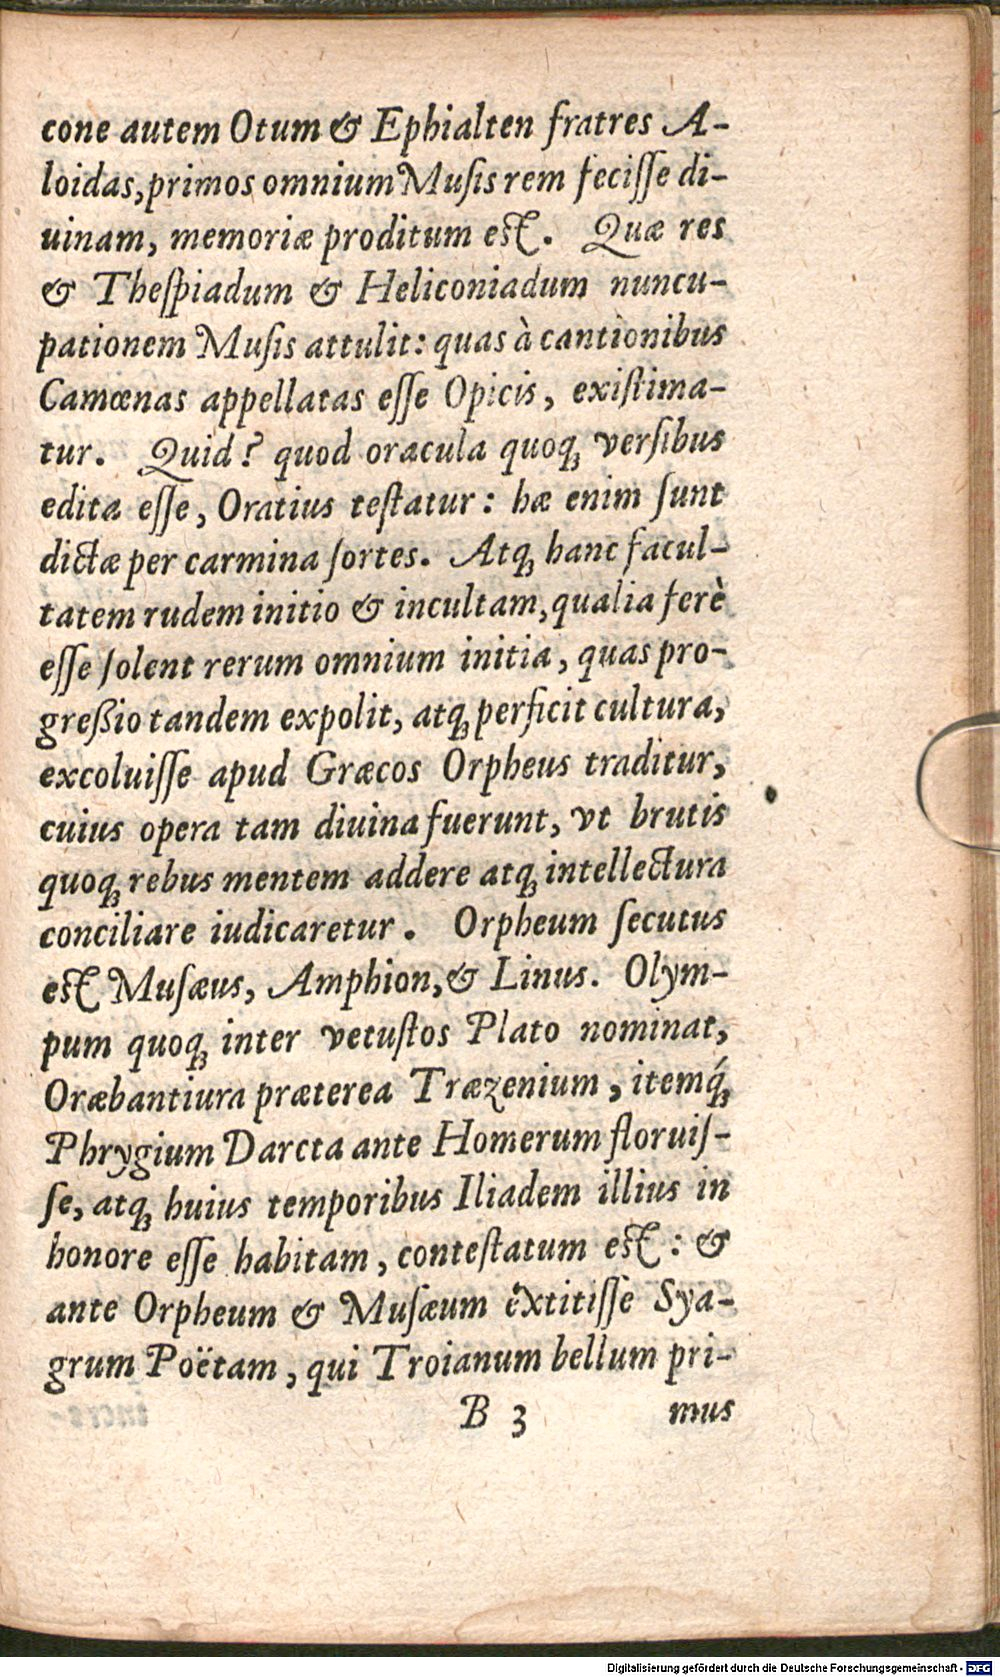 cone autem Otum & Ephialten fratres A-
loidas, primos omnium Muſis rem feciſſe di-
uinam, memoriæ proditum eſt. Quæ res
& Theſpiadum & Heliconiadum nuncu-
pationem Muſis attulit: quas à cantionibus
Camœnas appellatas eſſe Opicis, exiſtima-
tur. Quid? quod oracula quoq́; verſibus
edita eſſe, Oratius teſtatur: hæ enim ſunt
dictæ per carmina ſortes. Atq; hanc facul-
tatem rudem initio & incultam, qualia ferè
eſſe ſolent rerum omnium initia, quas pro-
greßio tandem expolit, atq; perficit cultura,
excoluiſſe apud Græcos Orpheus traditur,
cuius opera tam diuina fuerunt, vt brutis
quoq; rebus mentem addere atq; intellectura
conciliare iudicaretur. Orpheum ſecutus
eſt Muſæus, Amphion, & Linus. Olym-
pum quoq; inter vetuſtos Plato nominat,
Oræbantiura præterea Træzenium, itemq́;
Phrygium Darcta ante Homerum floruiſ-
ſe, atq; huius temporibus Iliadem illius in
honore eſſe habitam, conteſtatum eſt: &
ante Orpheum & Muſæum extitiſſe Sya-
grum Poëtam, qui Troianum bellum pri-
B 3 mus
Digitalisierung gefördert durch die Deutsche Forschungsgemeinschaft - DFG